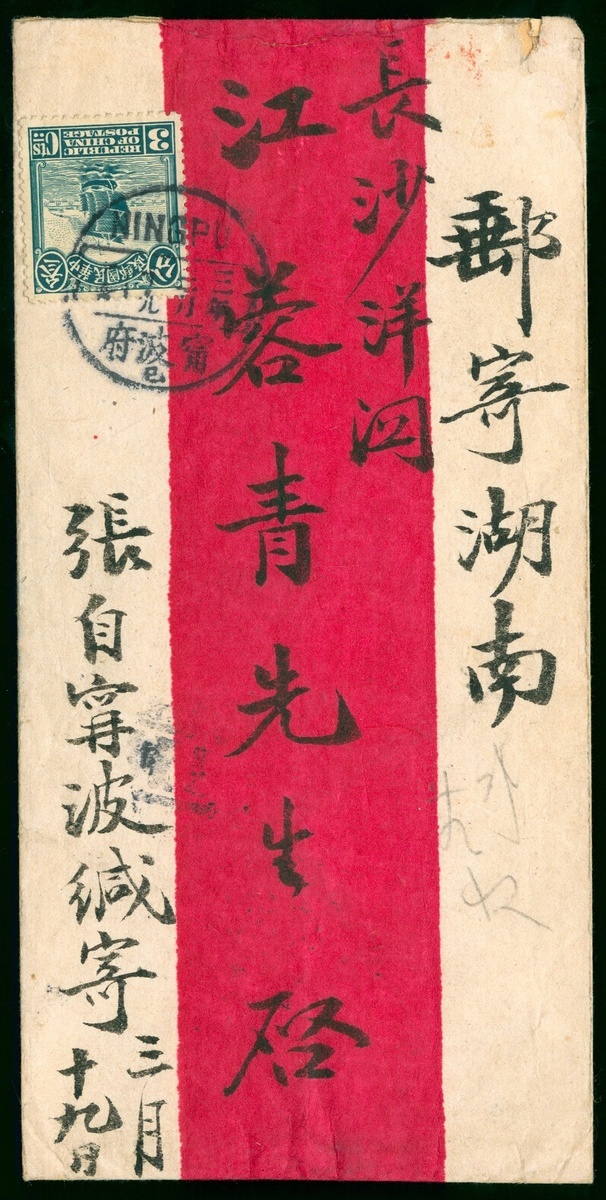 郵寄湖南
長沙洋泗
江蓉青先生啓
張自甯波緘寄
三月
十九日
3 Cts
REPUBLIC
OF CHINA
POSTAGE
中華民國郵政
叁分
NINGPO
甯波府